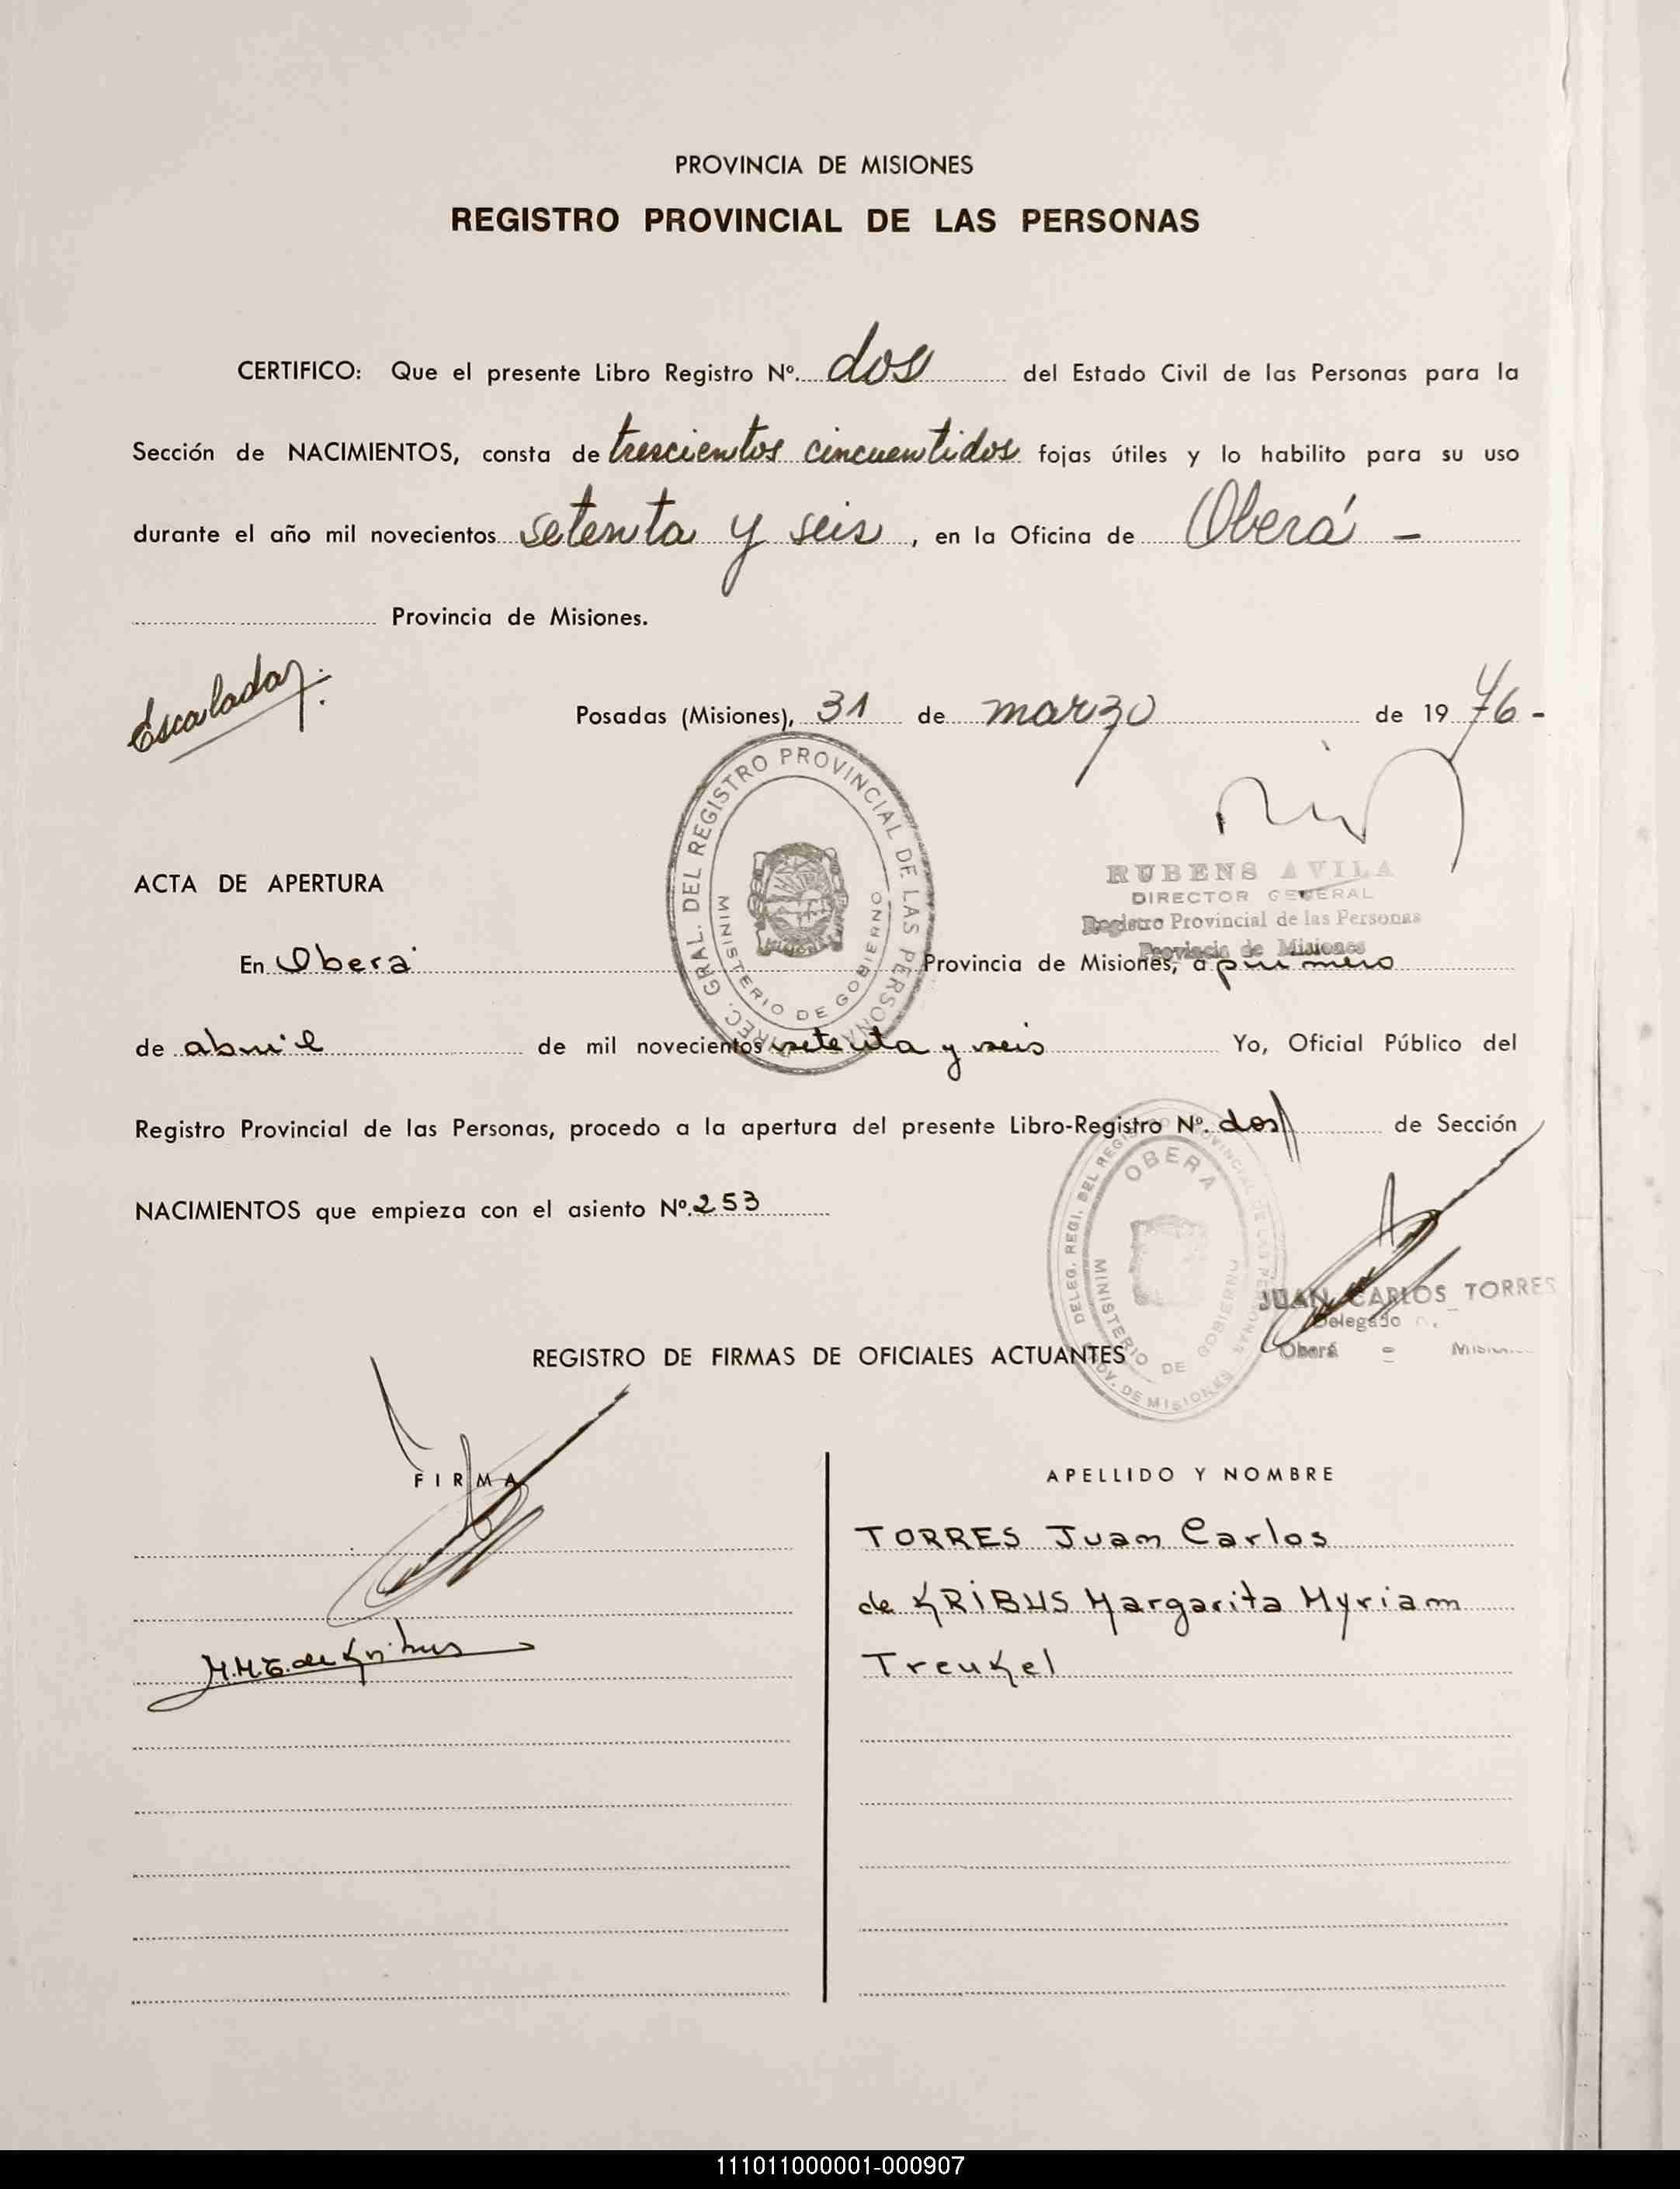 PROVINCIA DE MISIONES
REGISTRO PROVINCIAL DE LAS PERSONAS
CERTIFICO: Que el presente Libro Registro Nº. dos del Estado Civil de las Personas para la
Sección de NACIMIENTOS, consta de trescientos cincuentidos fojas útiles y lo habilito para su uso
durante el año mil novecientos setenta y seis, en la Oficina de Oberá -
Provincia de Misiones.
Posadas (Misiones), 31 de marzo de 19 76 -
DIREC. GRAL. DEL REGISTRO PROVINCIAL DE LAS PERSONAS
MINISTERIO DE GOBIERNO
RUBENS AVILA
DIRECTOR GENERAL
Registro Provincial de las Personas
Provincia de Misiones
ACTA DE APERTURA
En Oberá Provincia de Misiones, a primero
de abril de mil novecientos setenta y seis Yo, Oficial Público del
Registro Provincial de las Personas, procedo a la apertura del presente Libro-Registro Nº. dos de Sección
NACIMIENTOS que empieza con el asiento Nº. 253
DELEG. REGI. DEL REGISTRO PROVINCIAL DE LAS PERSONAS
OBERA
MINISTERIO DE GOBIERNO
PROV. DE MISIONES
JUAN CARLOS TORRES
Delegado
Oberá - Mision
REGISTRO DE FIRMAS DE OFICIALES ACTUANTES
FIRMA
APELLIDO Y NOMBRE
TORRES Juan Carlos
de KRIBUS Margarita Myriam
M.M.T. de Kribus
Treukel
111011000001-000907